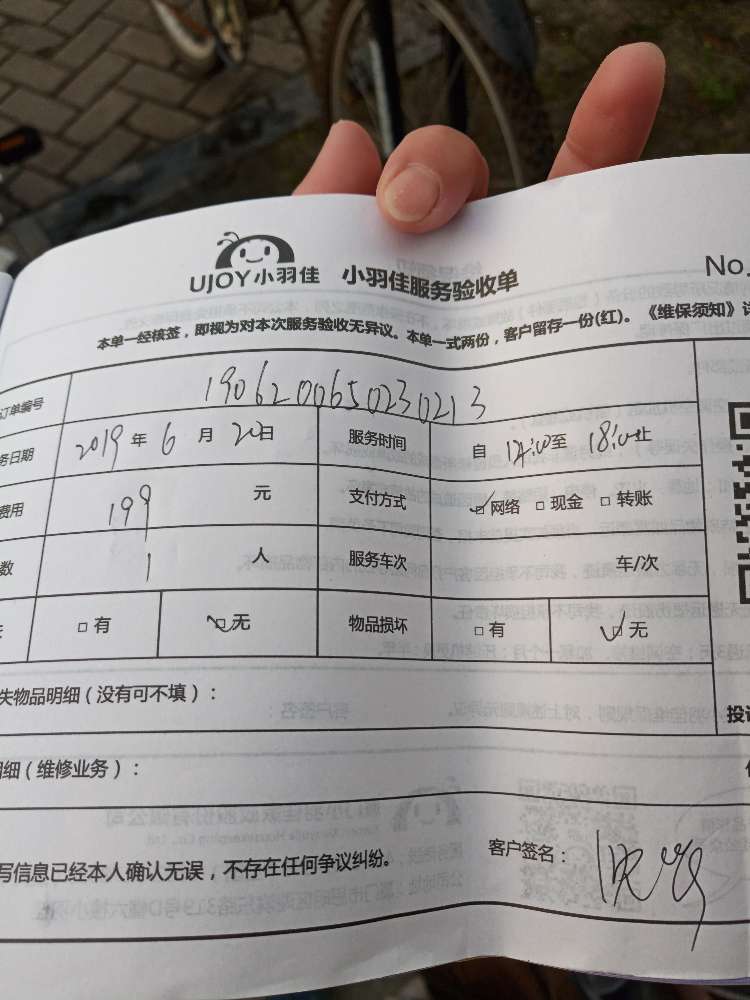 UJOY小羽佳 小羽佳服务验收单 No.
本单一经核签，即视为对本次服务验收无异议。本单一式两份，客户留存一份(红)。《维保须知》
订单编号 1906200650230213
务日期 2019 年 6 月 20 日 服务时间 自 14:00 至 18:00 止
费用 199 元 支付方式 ☑网络 □现金 □转账
数 1 人 服务车次 车/次
□有 ☑无 物品损坏 □有 ☑无
失物品明细（没有可不填）：
投
细（维修业务）：
写信息已经本人确认无误，不存在任何争议纠纷。 客户签名：